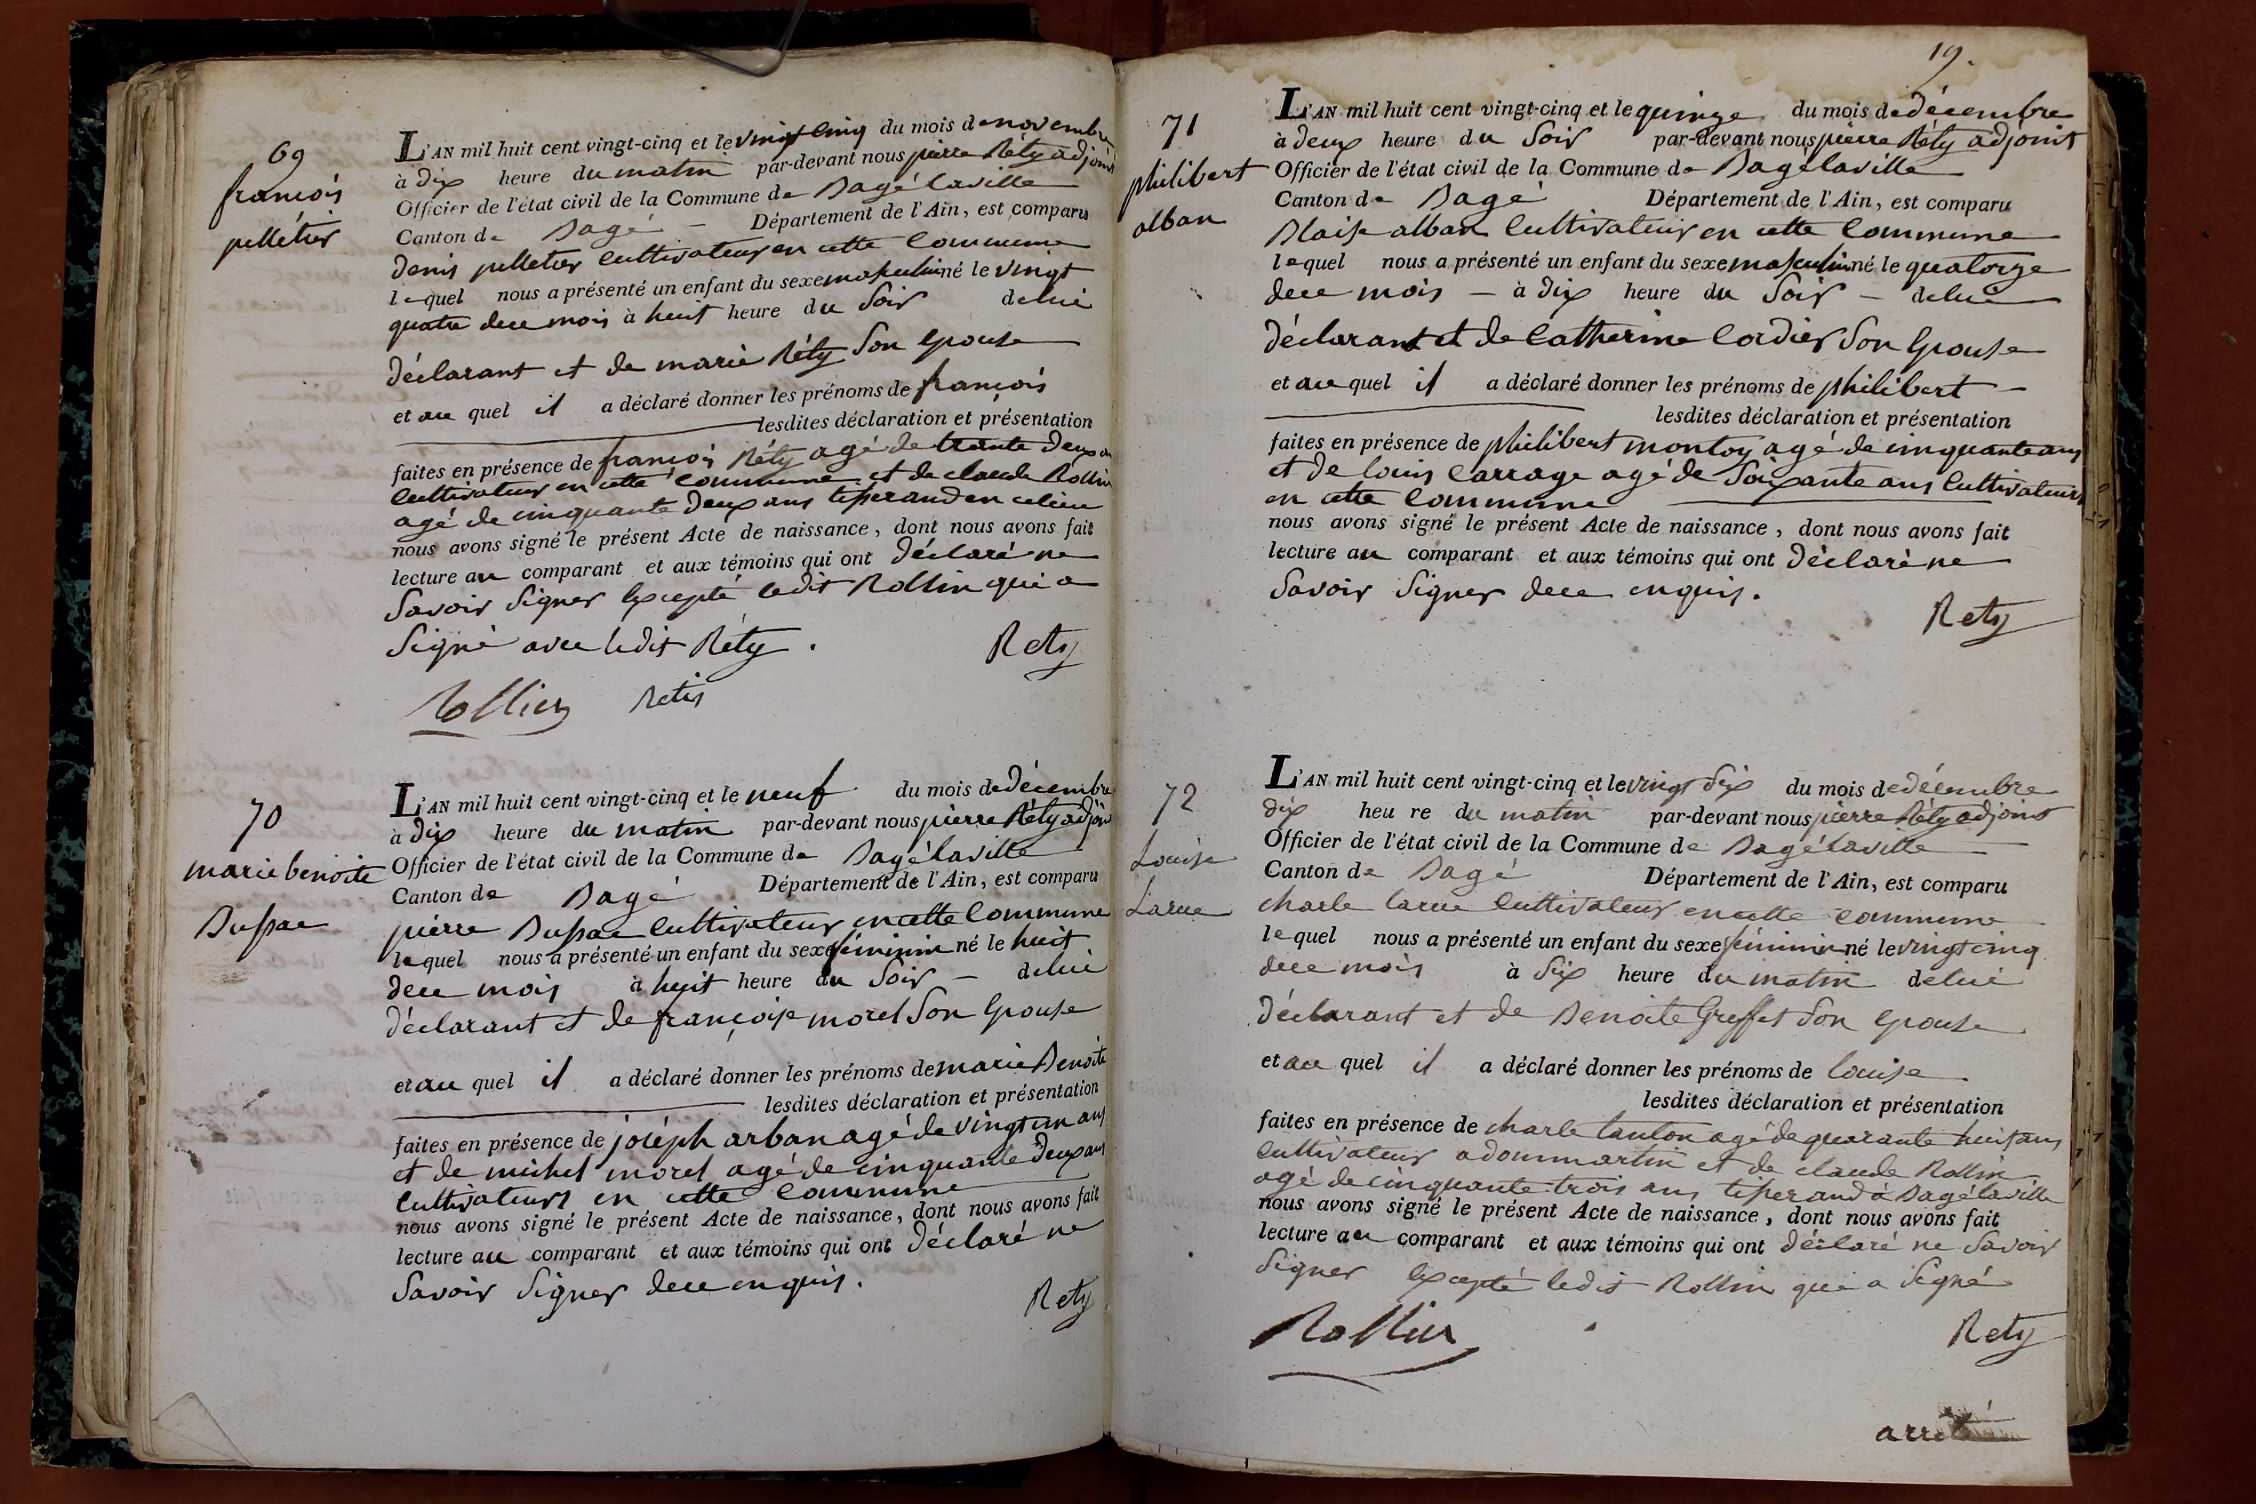 69
françois
pelletier
L'AN mil huit cent vingt-cinq et le vingt cinq du mois de novembre
à dix heure du matin par-devant nous pierre Réty adjoint
Officier de l'état civil de la Commune de Bagé laville
Canton de Bagé Département de l'Ain, est comparu
denis pelletier cultivateur en cette Commune
lequel nous a présenté un enfant du sexe masculin né le vingt
quatre de ce mois à huit heure du Soir de lui
déclarant et de marie Réty Son Epouse
et au quel il a déclaré donner les prénoms de françois
lesdites déclaration et présentation
faites en présence de françois Réty agé de trante deux an
Cultivateur en cette Commune et de claude Rollin
agé de cinquante deux ans tisserand en ce lieu
nous avons signé le présent Acte de naissance, dont nous avons fait
lecture au comparant et aux témoins qui ont déclaré ne
Savoir Signer Excepté ledit Rollin qui a
Signé avec ledit Réty.
Rety
Rollier Retis
70
marie benoite
Dussac
L'AN mil huit cent vingt-cinq et le neuf du mois de décembre
à dix heure du matin par-devant nous pierre Réty adjoin
Officier de l'état civil de la Commune de Bagé laville
Canton de Bagé Département de l'Ain, est comparu
pierre Dussac Cultivateur en cette Commune
lequel nous a présenté un enfant du sexe féminin né le huit
de ce mois à huit heure du Soir de lui
déclarant et de françoise morel Son Epouse
et au quel il a déclaré donner les prénoms de marie Benoite
lesdites déclaration et présentation
faites en présence de joséph arban agé de vingt un ans
et de michel morel agé de cinquante deux ans
Cultivateurs en cette Commune
nous avons signé le présent Acte de naissance, dont nous avons fait
lecture au comparant et aux témoins qui ont déclaré ne
Savoir Signer de ce enquis.
Rety
19.
71
philibert
alban
L'AN mil huit cent vingt-cinq et le quinze du mois de décembre
à deux heure du Soir par-devant nous pierre Réty adjoint
Officier de l'état civil de la Commune de Bagé laville
Canton de Bagé Département de l'Ain, est comparu
Blaise alban Cultivateur en cette Commune
lequel nous a présenté un enfant du sexe masculin né le quatorze
de ce mois à dix heure du Soir de lui
déclarant et de Catherine Cordier Son Epouse
et au quel il a déclaré donner les prénoms de philibert
lesdites déclaration et présentation
faites en présence de philibert montoy agé de cinquante ans
et de louis Carrage agé de Soixante ans Cultivateurs
en cette Commune
nous avons signé le présent Acte de naissance, dont nous avons fait
lecture au comparant et aux témoins qui ont déclaré ne
Savoir Signer de ce enquis.
Rety
72
Louise
Larue
L'AN mil huit cent vingt-cinq et le vingt Six du mois de décembre
dix heu re du matin par-devant nous pierre Réty adjoint
Officier de l'état civil de la Commune de Bagé laville
Canton de Bagé Département de l'Ain, est comparu
charle larue Cultivateur en cette commune
lequel nous a présenté un enfant du sexe féminin né le vingt cinq
de ce mois à Six heure du matin de lui
déclarant et de Benoite Greffet Son epouse
et au quel il a déclaré donner les prénoms de louise
lesdites déclaration et présentation
faites en présence de charle tanton agé de quarante huit ans
Cultivateur a dommartin et de claude Rollin
agé de cinquante trois ans tisserand à Bagé laville
nous avons signé le présent Acte de naissance, dont nous avons fait
lecture au comparant et aux témoins qui ont déclaré ne Savoir
Signer Excepté ledit Rollin qui a Signé
Rollier Rety